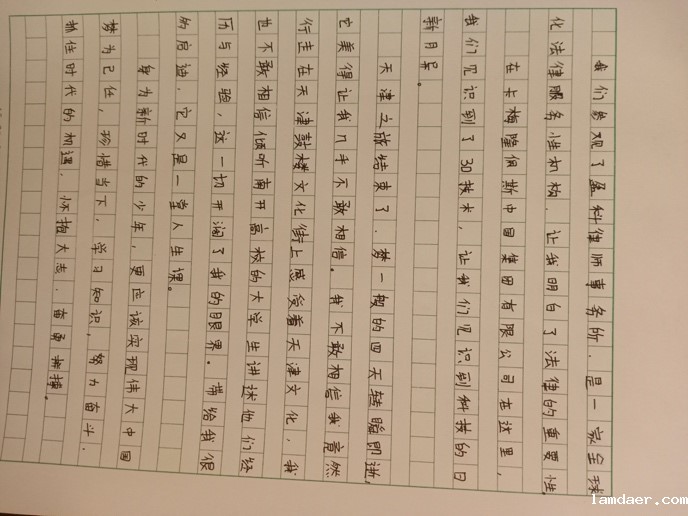 我们参观了盈科律师事务所.是一家全球
化法律服务性机构.让我明白了法律的重要性.
在卡梅隆佩斯中国集团有限公司在这里,
我们见识到了3D技术,让我们见识到科技的日
新月异。
天津之旅结束了.梦一般的四天转瞬即逝,
它美得让我几乎不敢相信。我不敢相信我竟然
行走在天津鼓楼文化街上感受着天津文化,我
也不敢相信倾听南开高校的大学生讲述他们经
历与经验,这一切开阔了我的眼界。带给我很
的启迪.它又是一堂人生课。
身为新时代的少年,更应该实现伟大中国
梦为己任,珍惜当下,学习知识,努力奋斗.
抓住时代的机遇.怀抱大志.奋勇拼搏。
lamdaer.com